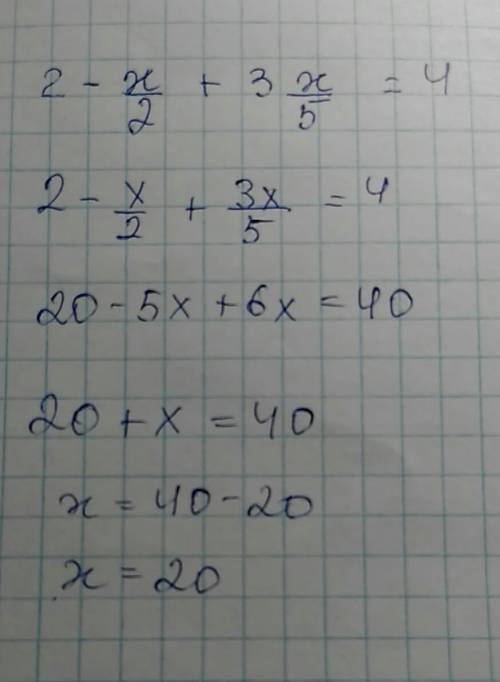 2 - x/2 + 3 x/5 = 4
2 - x/2 + 3x/5 = 4
20 - 5x + 6x = 40
20 + x = 40
x = 40 - 20
x = 20